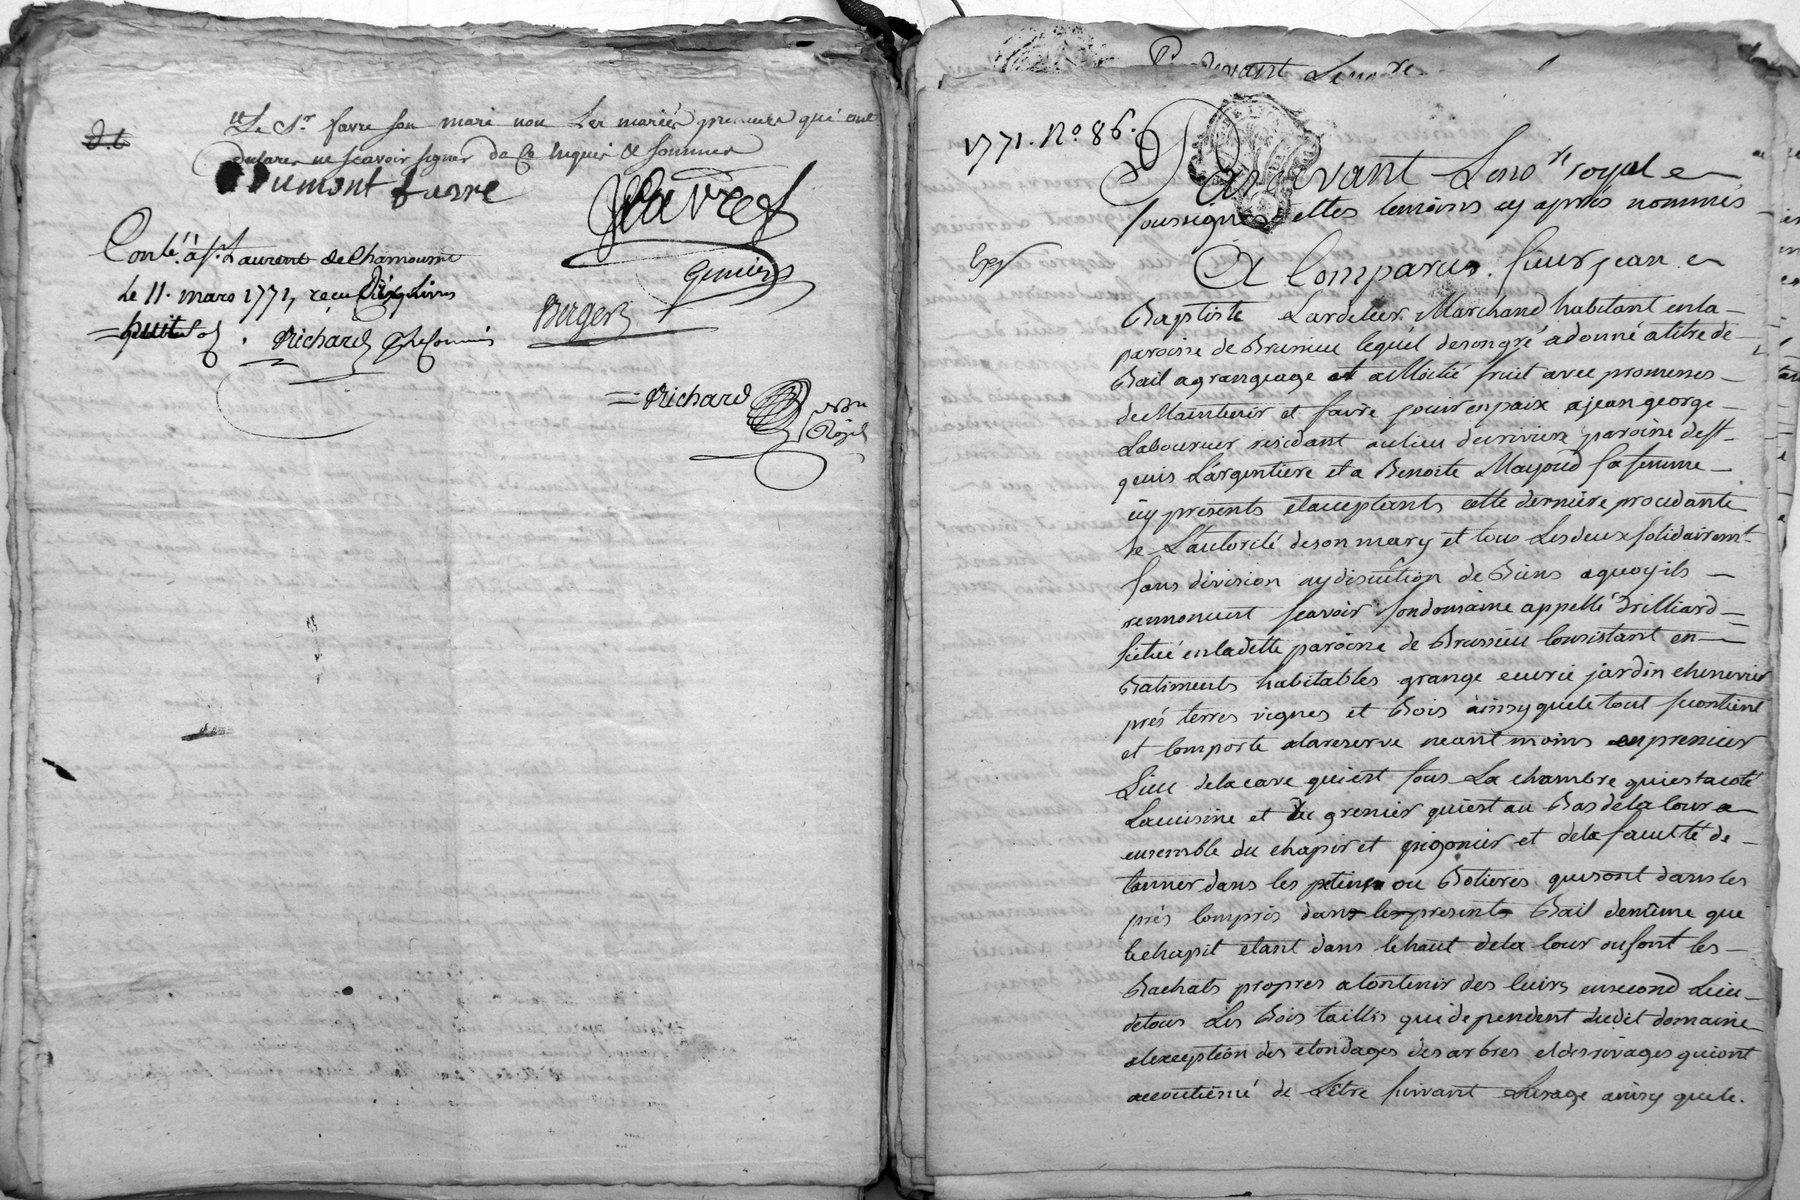 Le Sr favre son mari non les mariés qui ont
declarés ne scavoir signer de ce enquis & sommés
Dumont favre
favre
Conlé. à St. Laurent de Chamousset
le 11. mars 1771, reçu Dix livres
huit sols
Richard
Berger
Richard
Royal
Pardevant Le no re
1771. No 86.
Pardevant Le no re royal
soussigné et les temoins cy après nommés
Exp
A Comparus sieur jean
Baptiste Lardelier Marchand habitant en la
paroisse de Brussieu lequel de son gré a donné a titre de
Bail a grangeage et a Moitié fruit avec promesses
de Maintenir et faire jouir en paix a jean george
Labourner residant au lieu de riviere paroisse de st
genis L'argentiere et a Benoite Mayoud sa femme
icy presents et acceptants cette derniere procedante
de L'autorité de son mary et tous Les deux solidairemt
sans division ny discution de Biens a quoy ils
rennoncent scavoir son domaine appellé Drilliard
scitué en ladette paroisse de Brussieu Consistant en
Batiments habitables grange ecurie jardin chenevier
prés terres vignes et Bois ainsy que le tout se contient
et Comporte a la reserve neantmoins en premier
Lieu de la cave qui est sous La chambre qui est a coté
La cuisine et du grenier qui est au Bas de la Cour
ensemble du chapit et pigonier et de la faculté de
tanner dans les ou Botieres qui sont dans les
prés Compris dans les presents Bail de même que
le chapit etant dans le haut de la Cour ou sont les
Bachats propres a Contenir des Cuirs en second Lieu
de tous Les Bois taillis qui dependent dudit domaine
a l'exception des etondages des arbres et des rivages qui ont
accoutumé de L'etre suivant L'usage ainsy que le